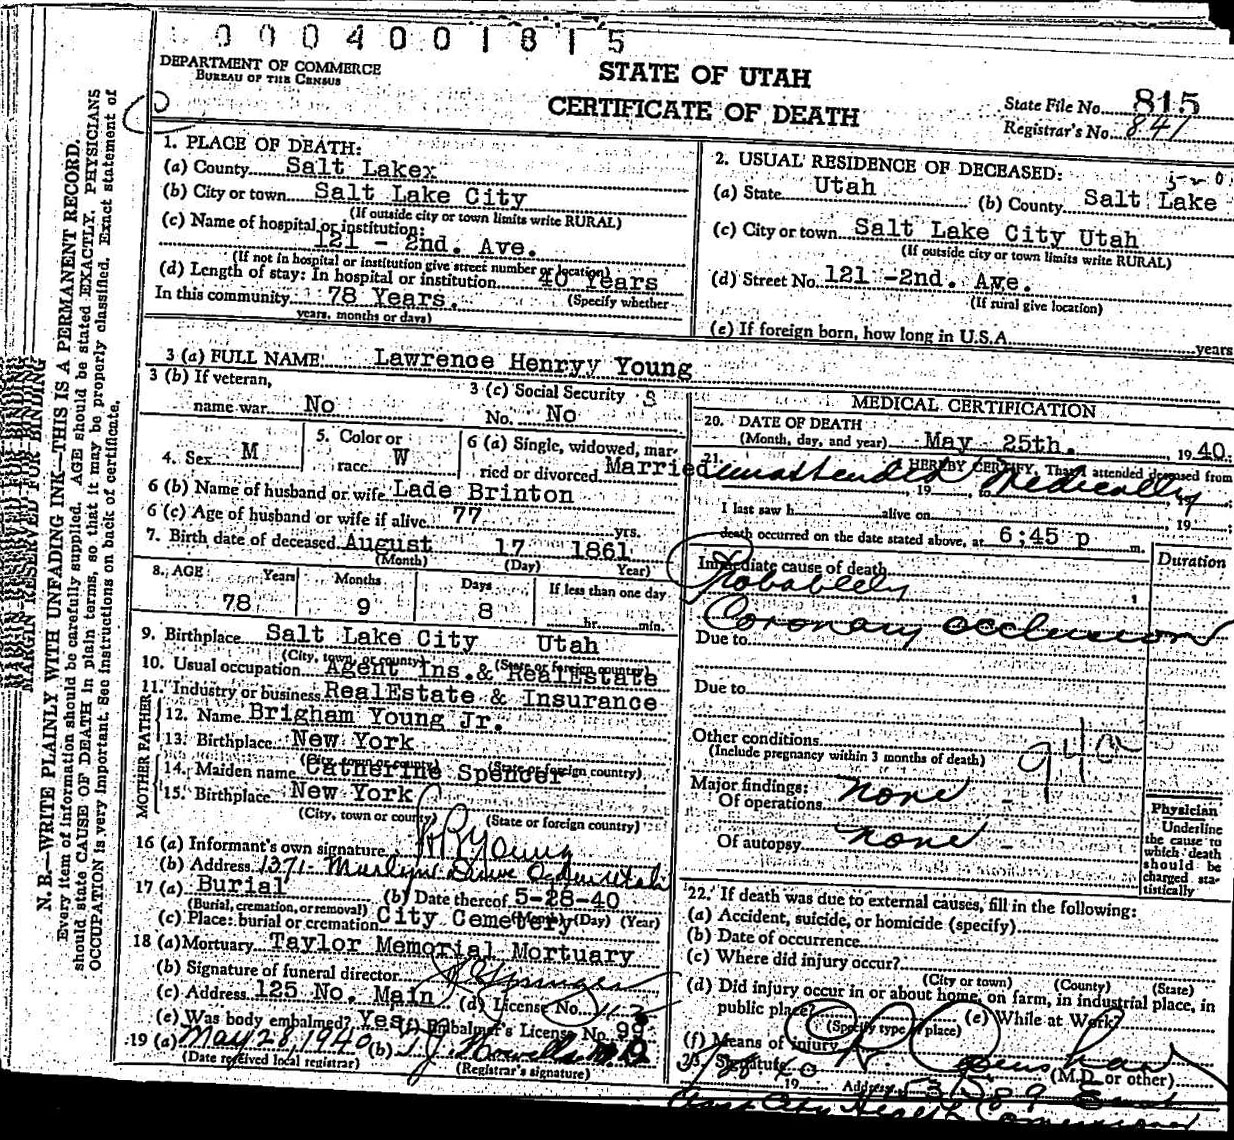 0004001815
DEPARTMENT OF COMMERCE
BUREAU OF THE CENSUS
STATE OF UTAH
CERTIFICATE OF DEATH
State File No. 815
Registrar's No. 841
MARGIN RESERVED FOR BINDING
N. B.—WRITE PLAINLY WITH UNFADING INK—THIS IS A PERMANENT RECORD.
Every item of information should be carefully supplied. AGE should be stated EXACTLY. PHYSICIANS
should state CAUSE OF DEATH in plain terms, so that it may be properly classified. Exact statement of
OCCUPATION is very important. See instructions on back of certificate.
1. PLACE OF DEATH:
(a) County Salt Lakex
(b) City or town Salt Lake City
(If outside city or town limits write RURAL)
(c) Name of hospital or institution:
121 - 2nd. Ave.
(If not in hospital or institution give street number or location)
(d) Length of stay: In hospital or institution 40 Years
In this community 78 Years. (Specify whether
years, months or days)
2. USUAL RESIDENCE OF DECEASED:
(a) State Utah (b) County Salt Lake
(c) City or town Salt Lake City Utah
(If outside city or town limits write RURAL)
(d) Street No. 121 -2nd. Ave.
(If rural give location)
(e) If foreign born, how long in U.S.A. years
3 (a) FULL NAME Lawrence Henryy Young
3 (b) If veteran,
name war No
3 (c) Social Security
No. No
4. Sex M
5. Color or
race W
6 (a) Single, widowed, mar-
ried or divorced Married
6 (b) Name of husband or wife Lade Brinton
6 (c) Age of husband or wife if alive 77 yrs.
7. Birth date of deceased August 17 1861
(Month) (Day) Year)
8. AGE Years Months Days If less than one day
78 9 8 hr. min.
9. Birthplace Salt Lake City Utah
(City, town, or county) (State or foreign country)
10. Usual occupation Agent Ins.& RealEstate
11. Industry or business RealEstate & Insurance
FATHER
12. Name Brigham Young Jr.
13. Birthplace New York
(City, town or county) (State or foreign country)
MOTHER
14. Maiden name Catherine Spencer
15. Birthplace New York
(City, town or county) (State or foreign country)
16 (a) Informant's own signature Young
(b) Address 1371- Ogden Utah
17 (a) Burial (b) Date thereof 5-28-40
(Burial, cremation, or removal) (Month) (Day) (Year)
(c) Place: burial or cremation City Cemetery
18 (a) Mortuary Taylor Memorial Mortuary
(b) Signature of funeral director
(c) Address 125 No. Main (d) License No.
(e) Was body embalmed? Yes (f) Embalmer's License No. 99
19 (a) May 28, 1940 (b)
(Date received local registrar) (Registrar's signature)
MEDICAL CERTIFICATION
20. DATE OF DEATH
(Month, day, and year) May 25th. 1940.
21. I HEREBY CERTIFY, That I attended deceased from
unattended Medically
19 to 19
I last saw h alive on 19
death occurred on the date stated above, at 6:45 p m.
Immediate cause of death Duration
Probably
Coronary occlusion
Due to
Due to
Other conditions
(Include pregnancy within 3 months of death)
94a
Major findings:
Of operations none
Of autopsy none
Physician
Underline
the cause to
which death
should be
charged sta-
tistically
22. If death was due to external causes, fill in the following:
(a) Accident, suicide, or homicide (specify)
(b) Date of occurrence
(c) Where did injury occur?
(City or town) (County) (State)
(d) Did injury occur in or about home, on farm, in industrial place, in
public place? (e) While at Work?
(Specify type of place)
(f) Means of injury
23. Signature
(M.D. or other)
19 Address
City Health